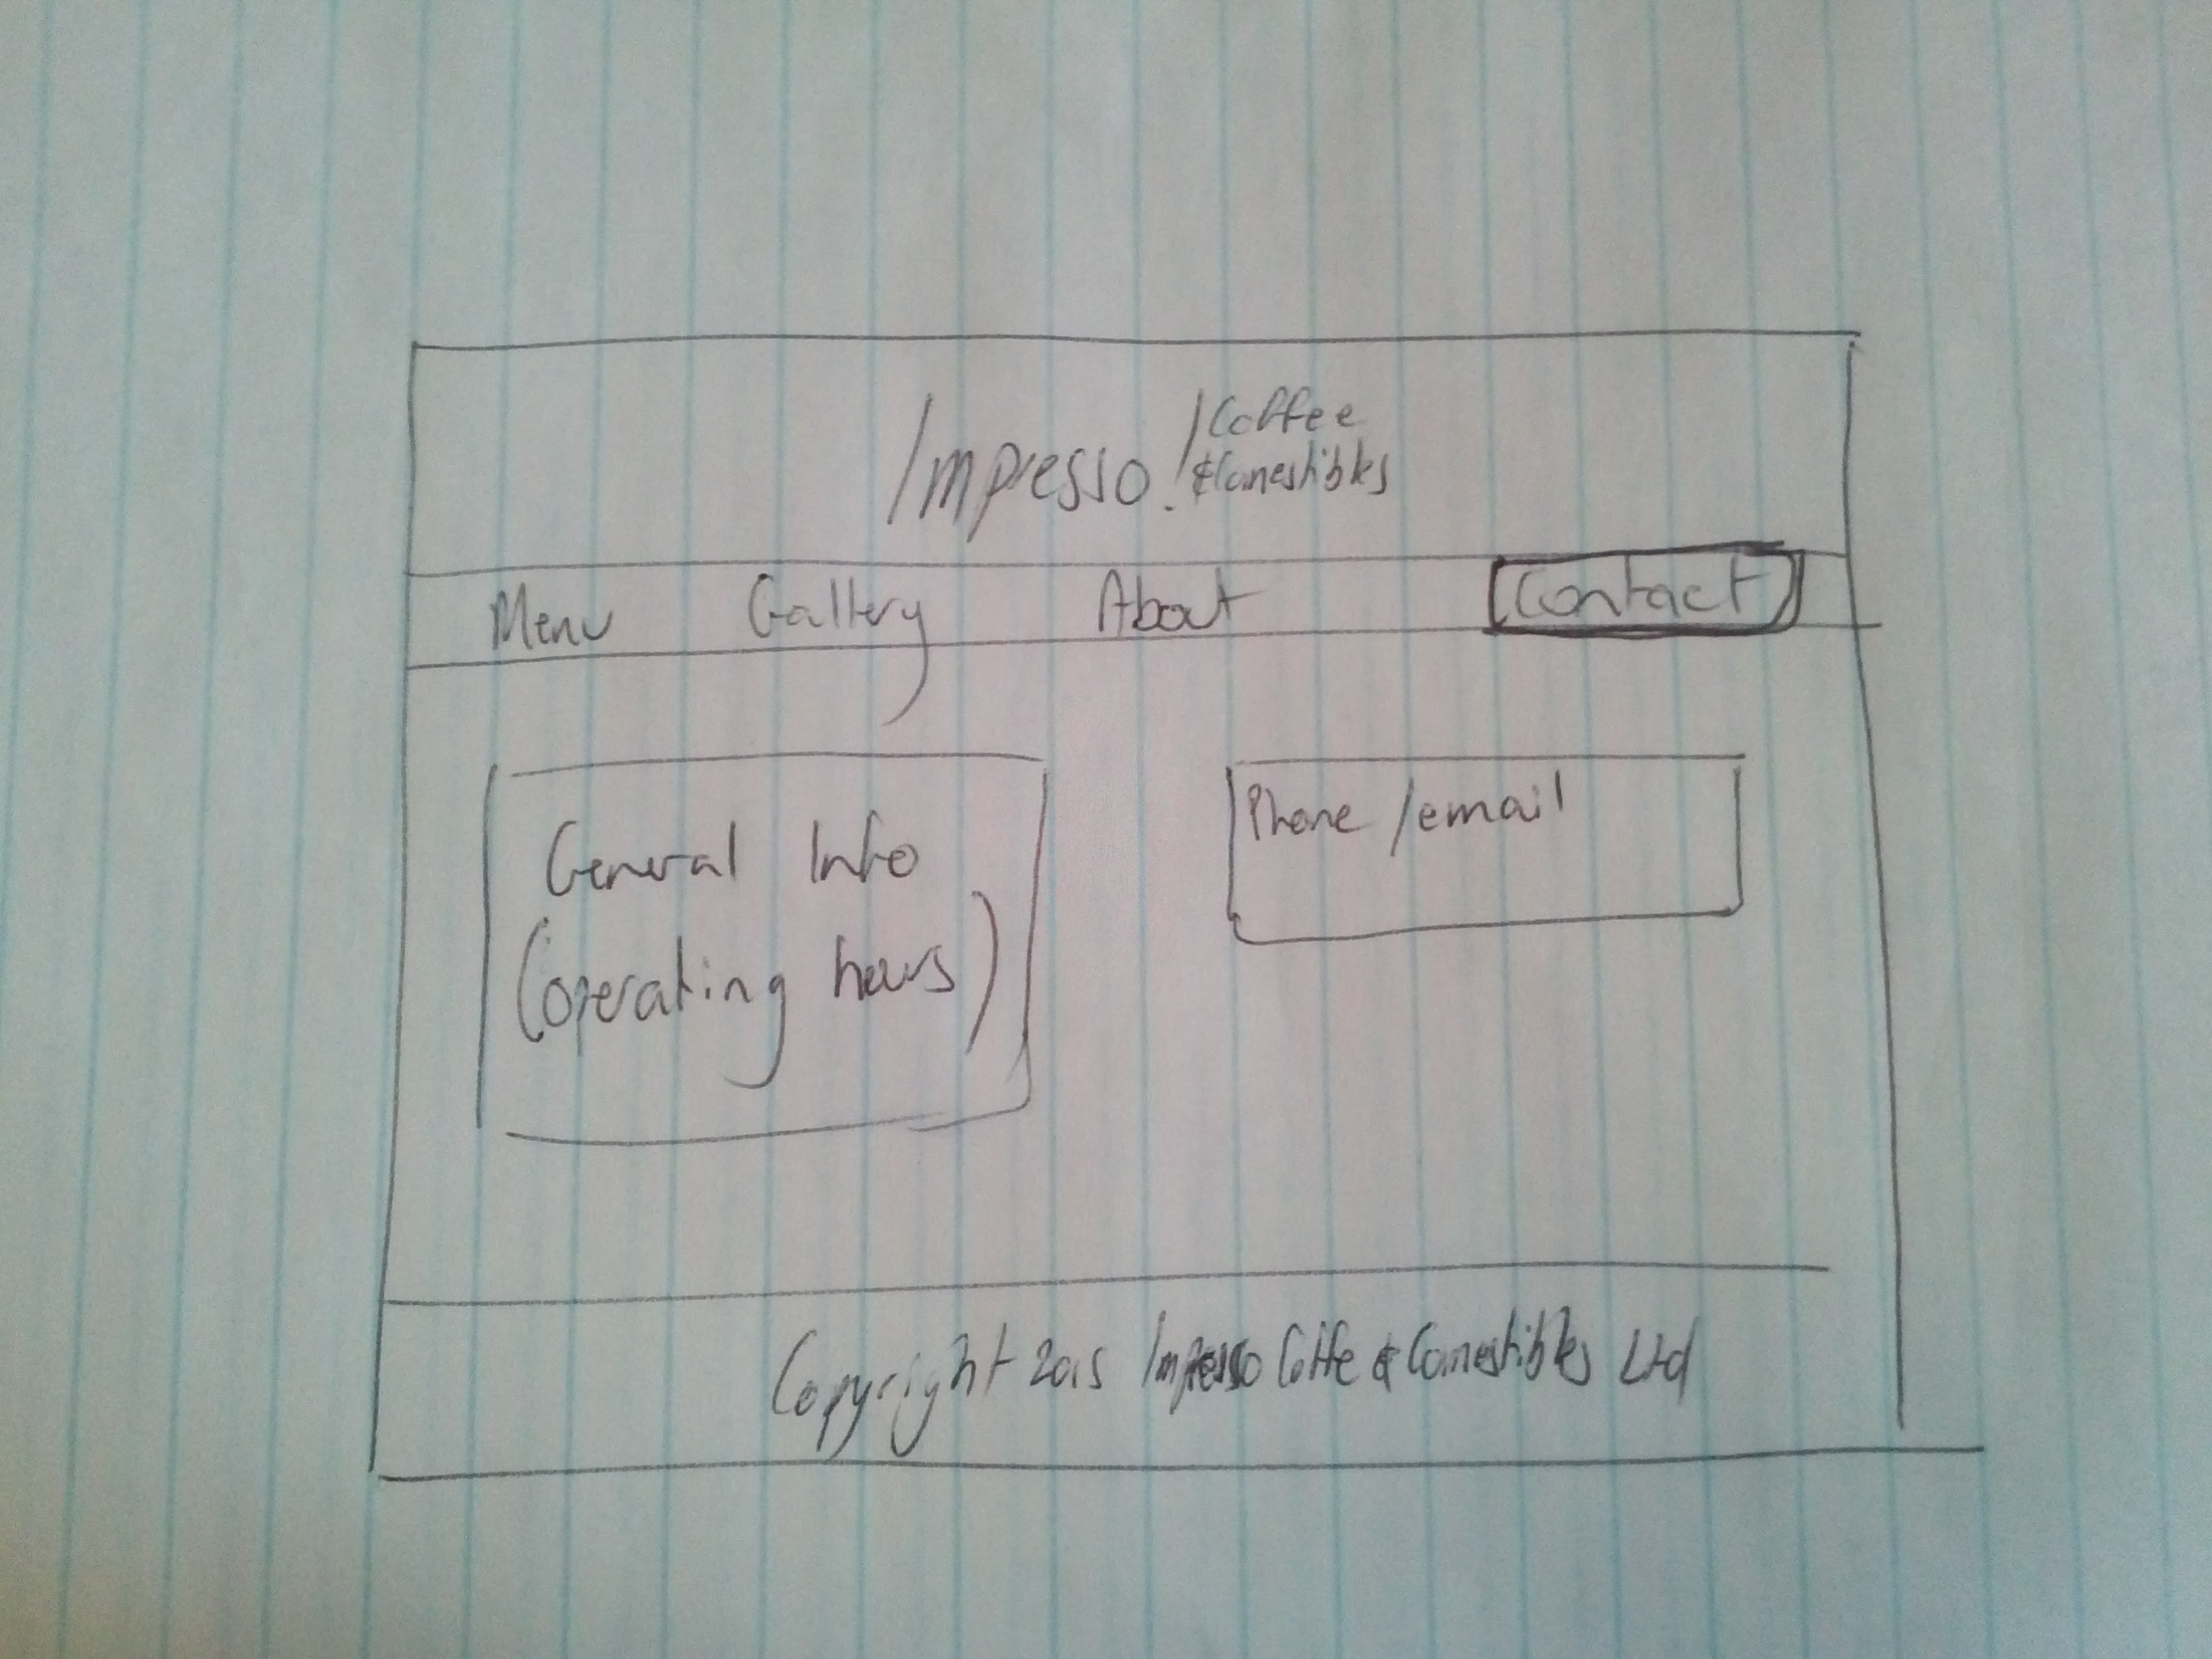 Impresso. / Coffee
& Comestibles
Menu Gallery About Contact
General Info
(operating hours)
Phone / email
Copyright 2015 Impresso Coffe & Comestibles Ltd